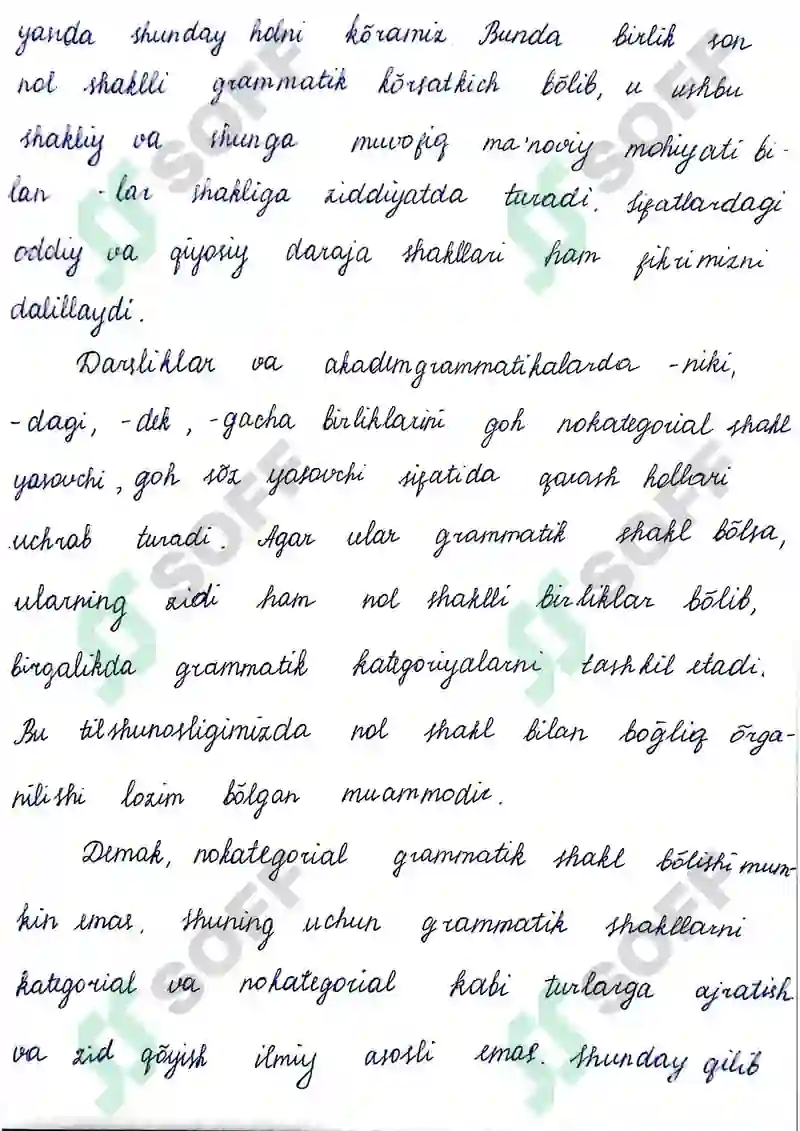 yanda shunday holni kōramiz. Bunda birlik son
nol shaklli grammatik kōrsatkich bōlib, u ushbu
shakliy va shunga muvofiq ma'noviy mohiyati bi-
lan -lar shakliga ziddiyatda turadi. Sifatlardagi
oddiy va qiyosiy daraja shakllari ham fikrimizni
dalillaydi.
Darsliklar va akademgrammatikalarda -niki,
-dagi, -dek, -gacha birliklarini goh nokategorial shakl
yasovchi, goh sōz yasovchi sifatida qarash hollari
uchrab turadi. Agar ular grammatik shakl bōlsa,
ularning zidi ham nol shaklli birliklar bōlib,
birgalikda grammatik kategoriyalarni tashkil etadi.
Bu tilshunosligimizda nol shakl bilan boḡliq ōrga-
nilishi lozim bōlgan muammodir.
Demak, nokategorial grammatik shakl bōlishi mum-
kin emas. Shuning uchun grammatik shakllarni
kategorial va nokategorial kabi turlarga ajratish
va zid qōyish ilmiy asosli emas. Shunday qilib
SOFF
SOFF
SOFF
SOFF
SOFF
SOFF